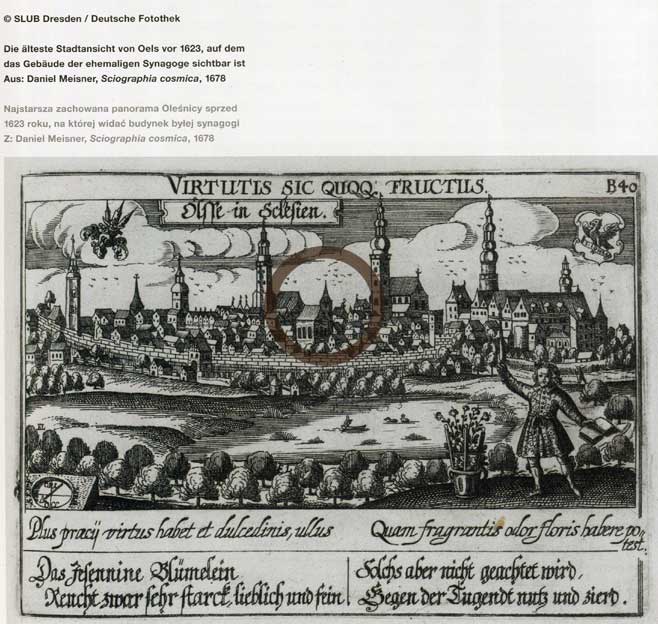 © SLUB Dresden / Deutsche Fotothek
Die älteste Stadtansicht von Oels vor 1623, auf dem
das Gebäude der ehemaligen Synagoge sichtbar ist
Aus: Daniel Meisner, Sciographia cosmica, 1678
Najstarsza zachowana panorama Oleśnicy sprzed
1623 roku, na której widać budynek byłej synagogi
Z: Daniel Meisner, Sciographia cosmica, 1678
VIRTUTIS SIC QUOQ; FRUCTUS.
B40
Ölsse in Sclesien.
Plus præcij virtus habet et dulcedinis, ullus
Quam fragrantis odor floris habere po-
test.
Das Jesennine Blümelein
Reucht zwar sehr starck, lieblich und fein.
Solchs aber nicht geachtet wird,
Gegen der Tugendt nutz und zierd.